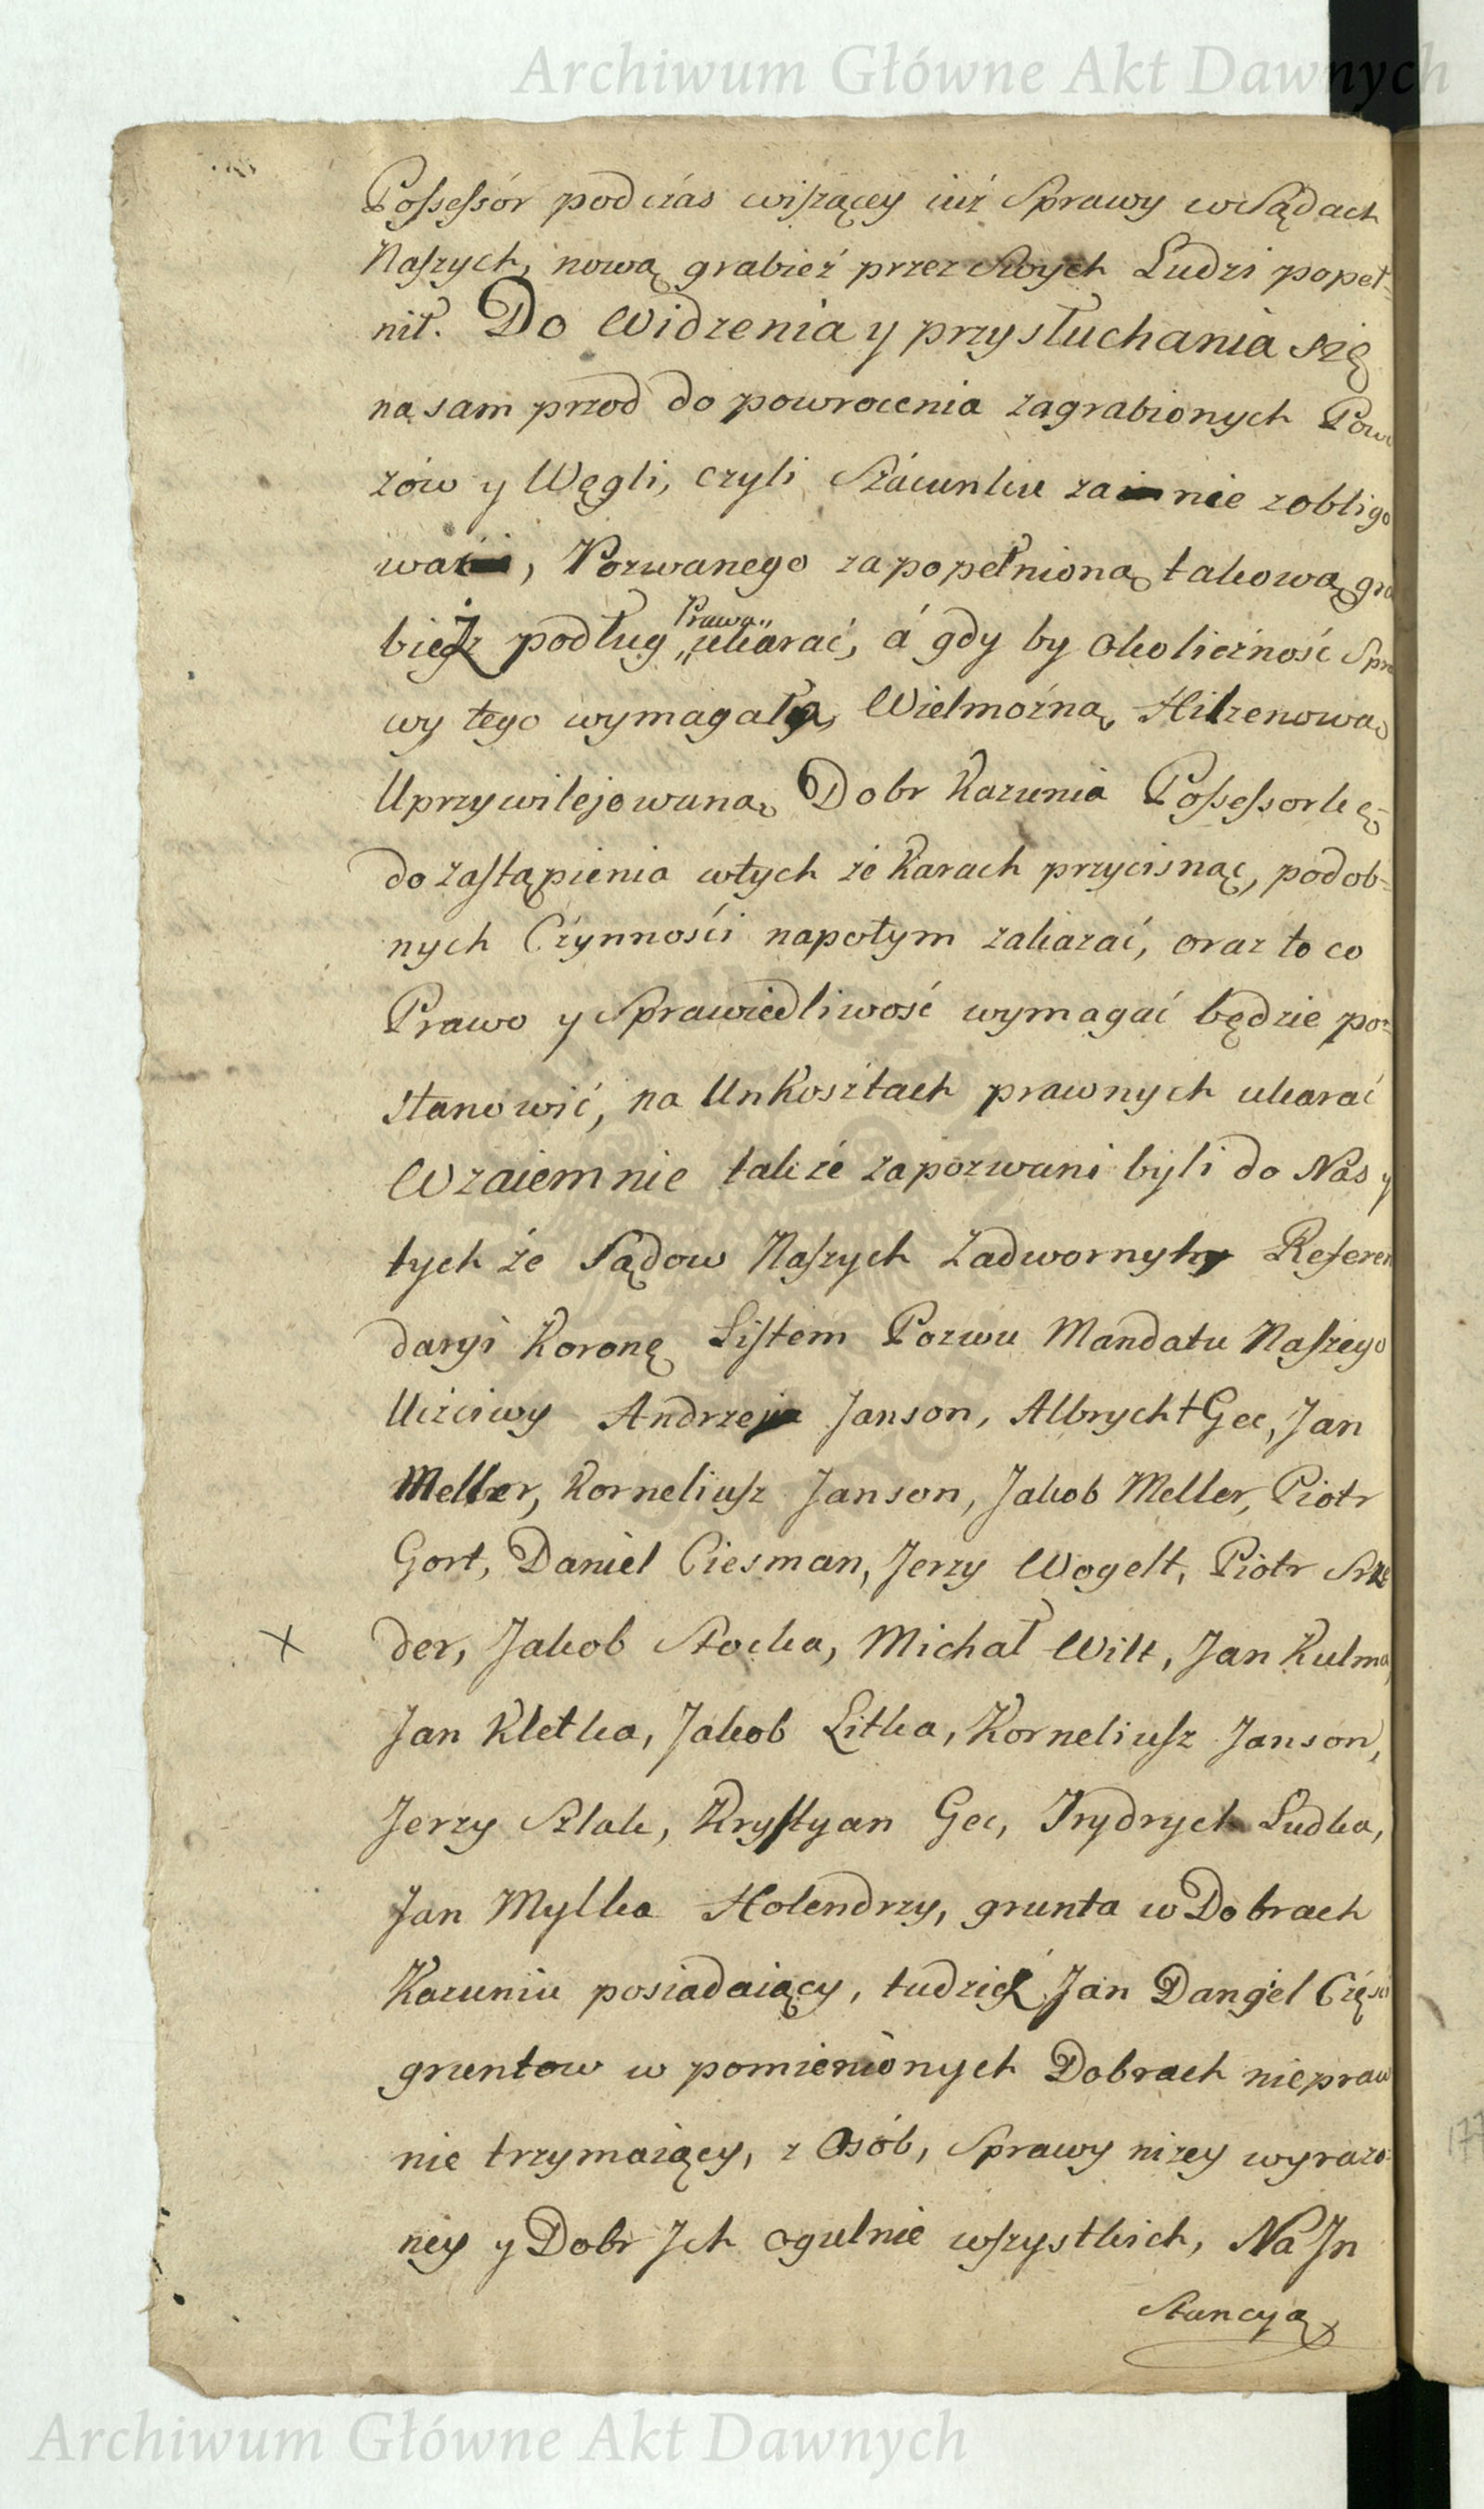 Archiwum Główne Akt Dawnych
Possessór podczás wiszącey iuź Sprawy w Sądach
Naszych, nową grabież przez Swych Ludzi popeł-
nił. Do Widzenia y przysłuchania się
na sam przod do powrocenia zagrabionych Powo
zów y Węgli, czyli Szácunku za nie zobligo
wać, Pozwanego za popełnioną takową gra
bież podług Prawa ukarać, á gdy by okoliczność Spra
wy tego wymagała, Wielmożną Hilzenową
Uprzywilejowaną Dobr Kazunia Possessorkę
do zastąpienia w tych że Karach przycisnąć, podob-
nych Czynności napotym zakazać, oraz to co
Prawo y Sprawiedliwość wymagać będzie po-
stanowić, na Unkosztach prawnych ukarać
Wzaiemnie także zapozwani byli do Nas y
tych że Sądow Naszych Zadwornych Referen
daryi Koronę Listem Pozwu Mandatu Naszego
Uczciwy Andrzej Janson, Albrycht Gec, Jan
Meller, Korneliusz Janson, Jakob Meller, Piotr
Gort, Daniel Ciesman, Jerzy Wogelt, Piotr Srze
der, Jakob Stocka, Michał Wilt, Jan Kulma,
Jan Kletka, Jakob Litka, Korneliusz Janson,
Jerzy Szlak, Krystyan Gec, Frydrych Ludka,
Jan Mylka Holendrzy, grunta w Dobrach
Kazuniu posiadaiący, tudzież Jan Dangel Częsć
gruntow w pomienionych Dobrach niepraw
nie trzymaiący, z Osób, Sprawy niżey wyrażo-
ney y Dobr Jch ogulnie wszystkich, Na Jn
Stancyą
Archiwum Główne Akt Dawnych